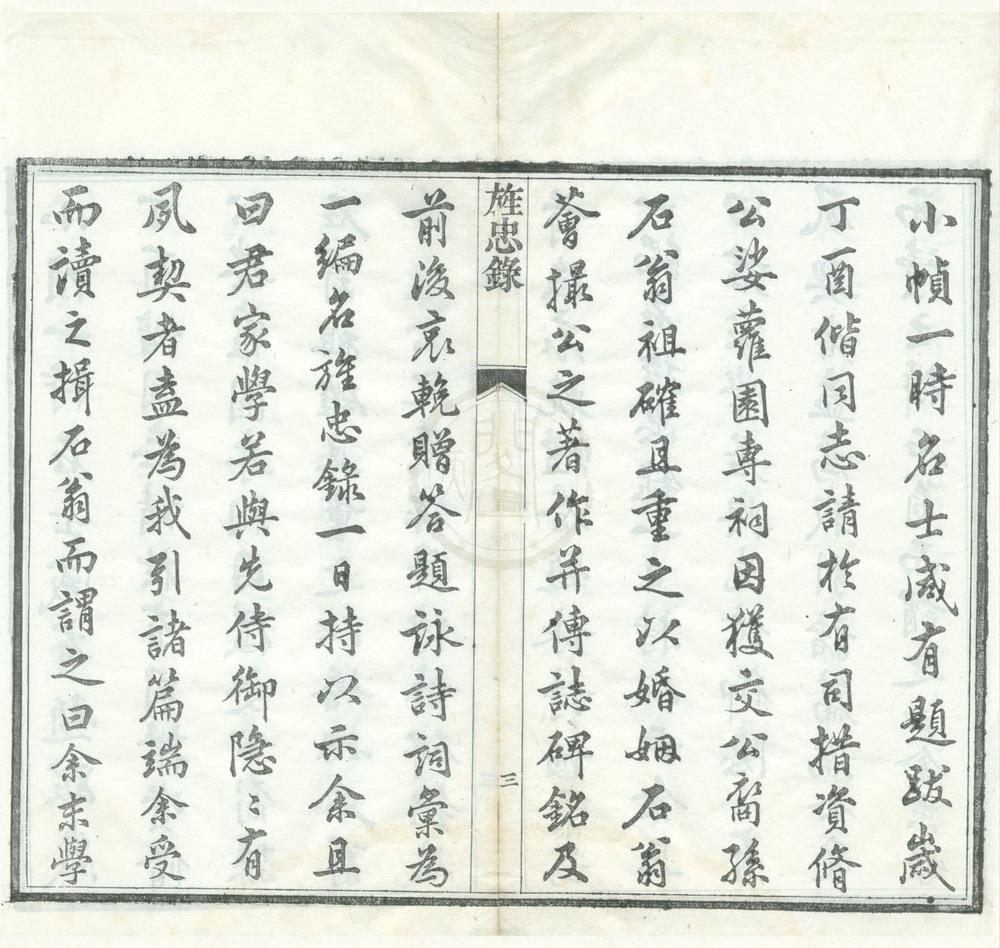 小幀一時名士咸有題跋歲
丁酉偕同志請於有司措資脩
公娑蘿園專祠因獲交公裔孫
石翁祖確且重之以婚姻石翁
薈撮公之著作并傳誌碑銘及
旌忠錄
三
前後哀輓贈答題詠詩詞彙為
一編名旌忠錄一日持以示余且
曰君家學若與先侍御隱〻有
夙契者盍為我引諸篇端余受
而讀之揖石翁而謂之曰余末學